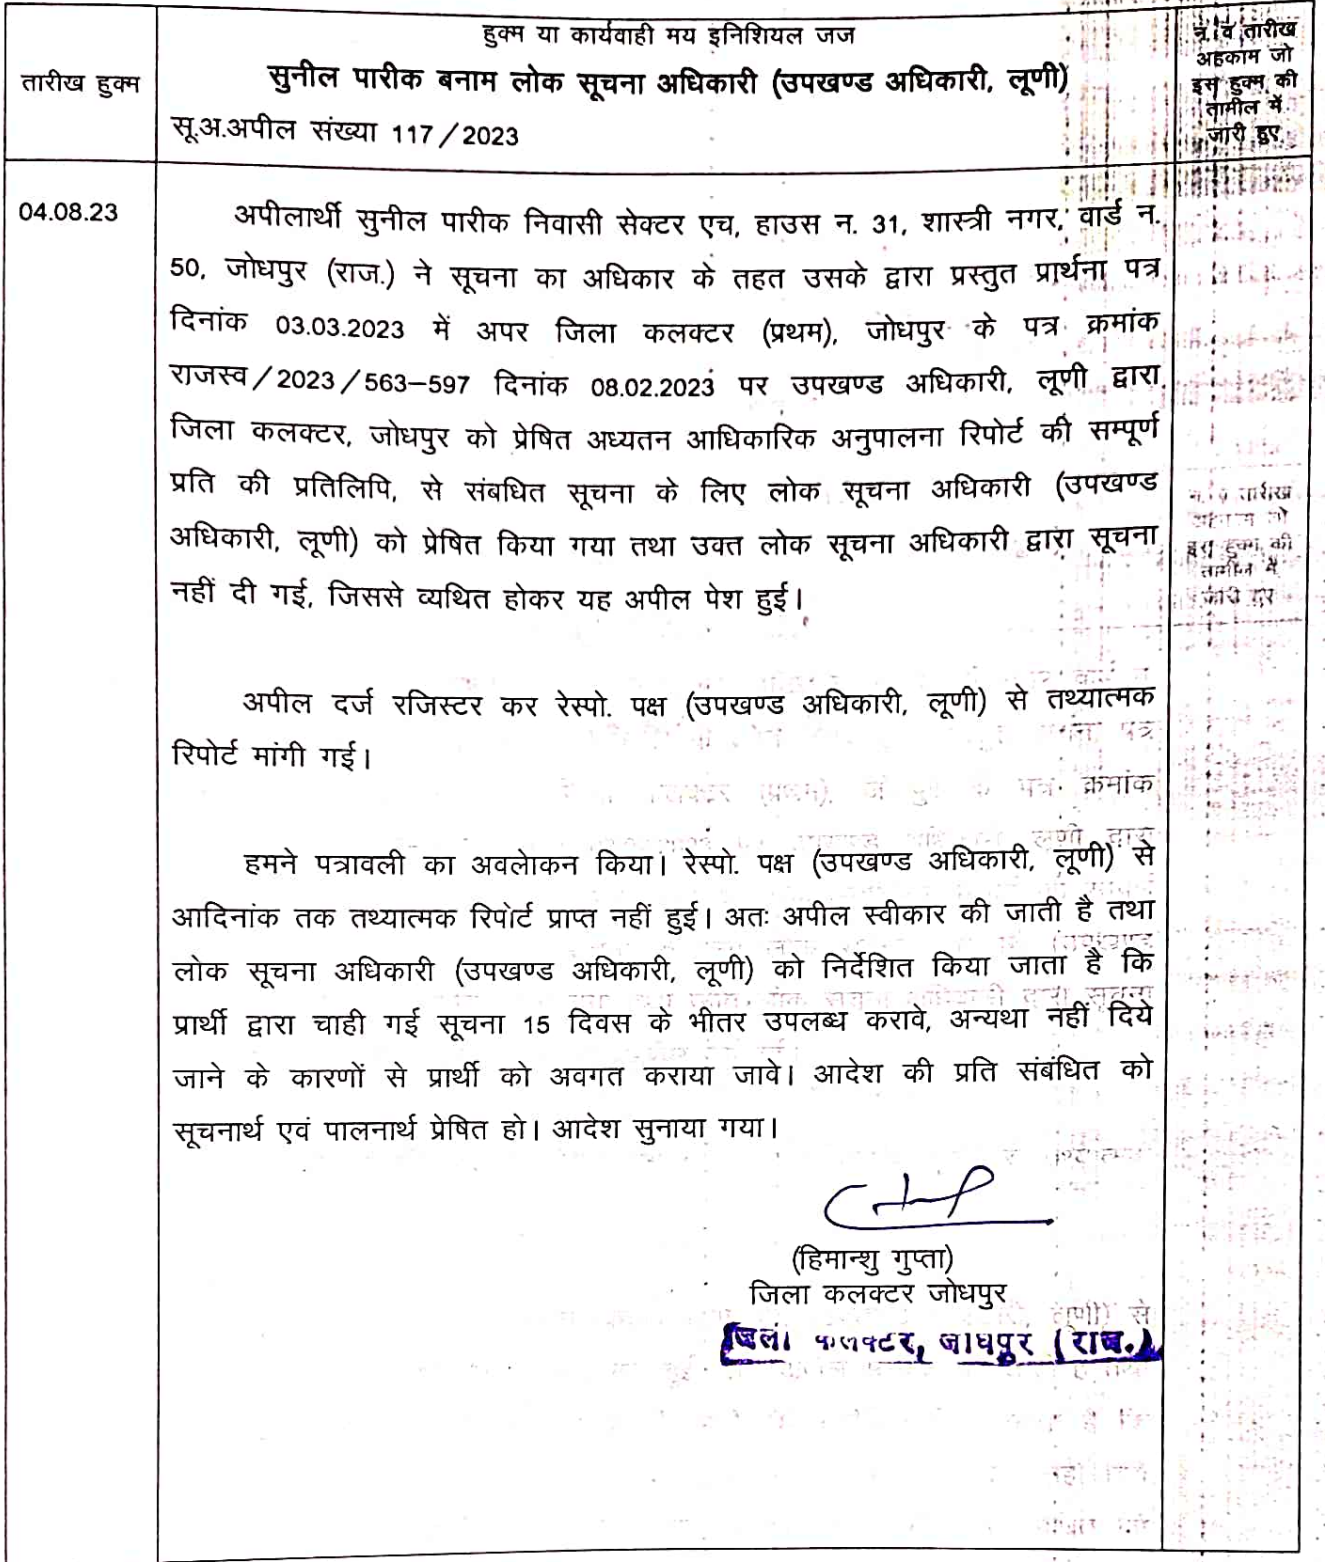 हुक्म या कार्यवाही मय इनिशियल जज
तारीख हुक्म
सुनील पारीक बनाम लोक सूचना अधिकारी (उपखण्ड अधिकारी, लूणी)
सू.अ.अपील संख्या 117/2023
न. व तारीख
अहकाम जो
इस हुक्म की
तामील में
जारी हुए
04.08.23
अपीलार्थी सुनील पारीक निवासी सेक्टर एच, हाउस न. 31, शास्त्री नगर, वार्ड न.
50, जोधपुर (राज.) ने सूचना का अधिकार के तहत उसके द्वारा प्रस्तुत प्रार्थना पत्र
दिनांक 03.03.2023 में अपर जिला कलक्टर (प्रथम), जोधपुर के पत्र क्रमांक
राजस्व/2023/563–597 दिनांक 08.02.2023 पर उपखण्ड अधिकारी, लूणी द्वारा
जिला कलक्टर, जोधपुर को प्रेषित अध्यतन आधिकारिक अनुपालना रिपोर्ट की सम्पूर्ण
प्रति की प्रतिलिपि, से संबधित सूचना के लिए लोक सूचना अधिकारी (उपखण्ड
अधिकारी, लूणी) को प्रेषित किया गया तथा उक्त लोक सूचना अधिकारी द्वारा सूचना
नहीं दी गई, जिससे व्यथित होकर यह अपील पेश हुई।
अपील दर्ज रजिस्टर कर रेस्पो. पक्ष (उपखण्ड अधिकारी, लूणी) से तथ्यात्मक
रिपोर्ट मांगी गई।
हमने पत्रावली का अवलोकन किया। रेस्पो. पक्ष (उपखण्ड अधिकारी, लूणी) से
आदिनांक तक तथ्यात्मक रिपोर्ट प्राप्त नहीं हुई। अतः अपील स्वीकार की जाती है तथा
लोक सूचना अधिकारी (उपखण्ड अधिकारी, लूणी) को निर्देशित किया जाता है कि
प्रार्थी द्वारा चाही गई सूचना 15 दिवस के भीतर उपलब्ध करावे, अन्यथा नहीं दिये
जाने के कारणों से प्रार्थी को अवगत कराया जावे। आदेश की प्रति संबंधित को
सूचनार्थ एवं पालनार्थ प्रेषित हो। आदेश सुनाया गया।
(हिमान्शु गुप्ता)
जिला कलक्टर जोधपुर
जिला कलक्टर, जोधपुर (राज.)